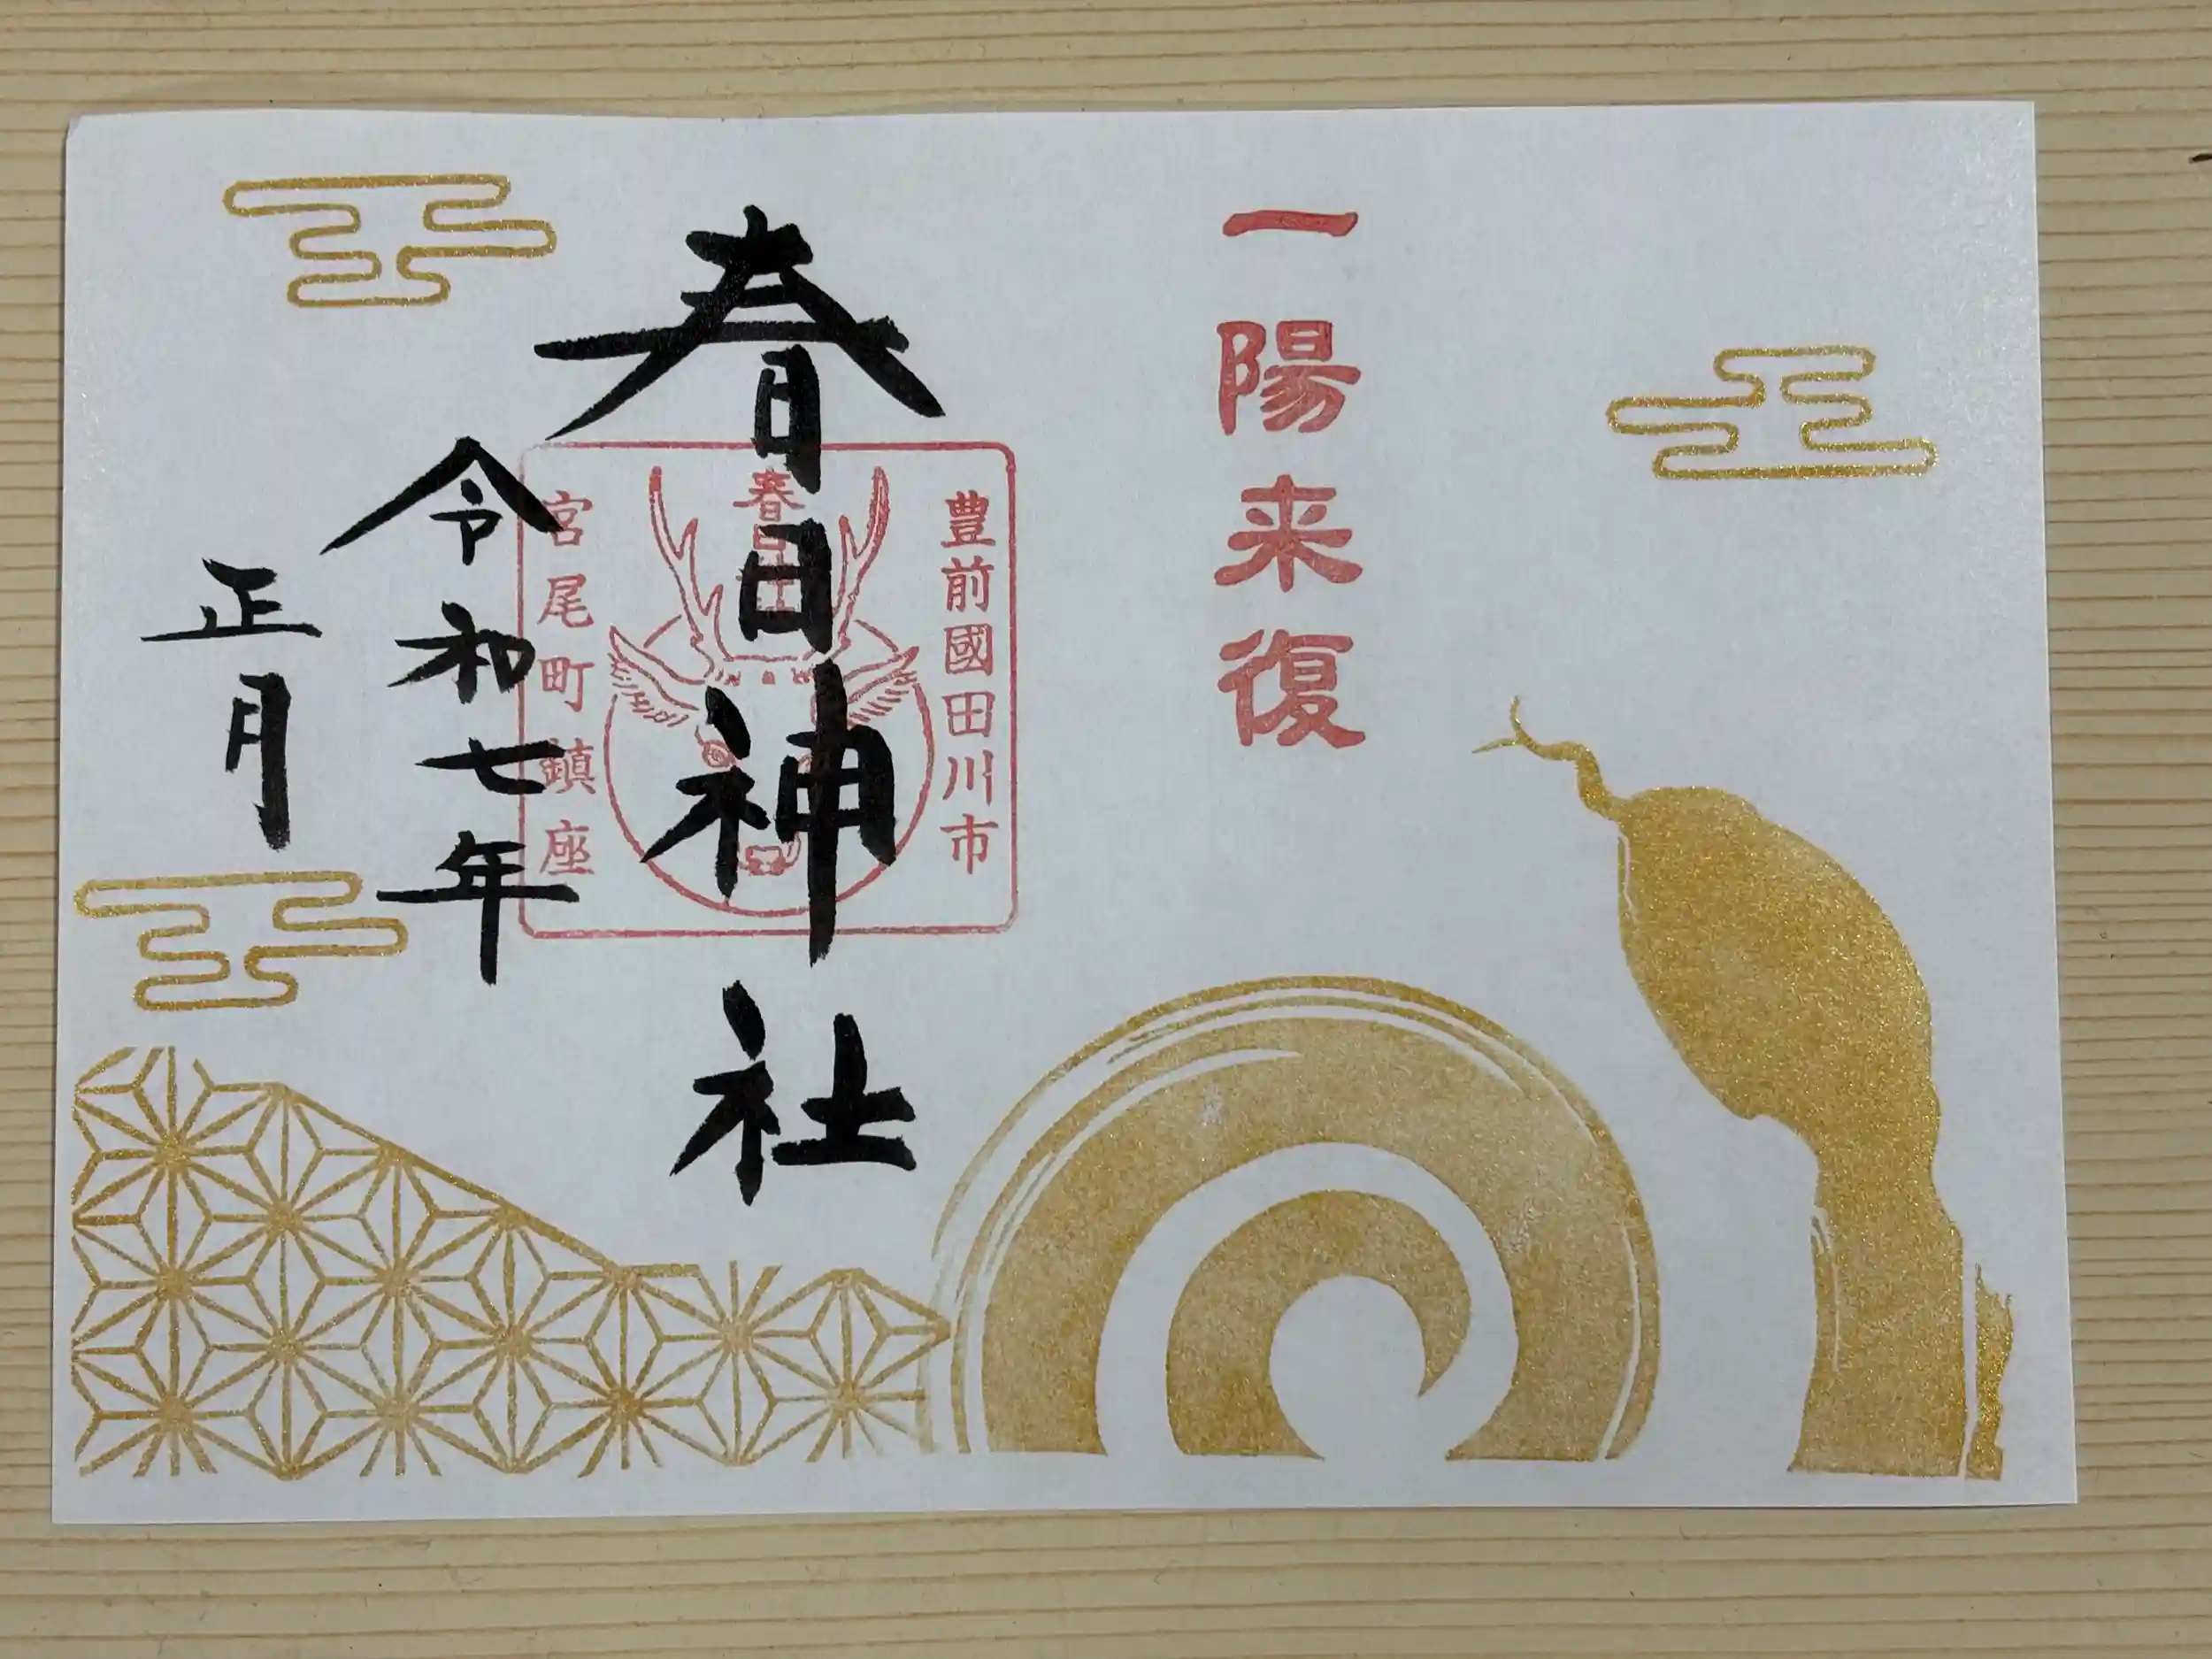 一陽来復
豊前國田川市
春日社
春日神社
宮尾町鎮座
令和七年
正月